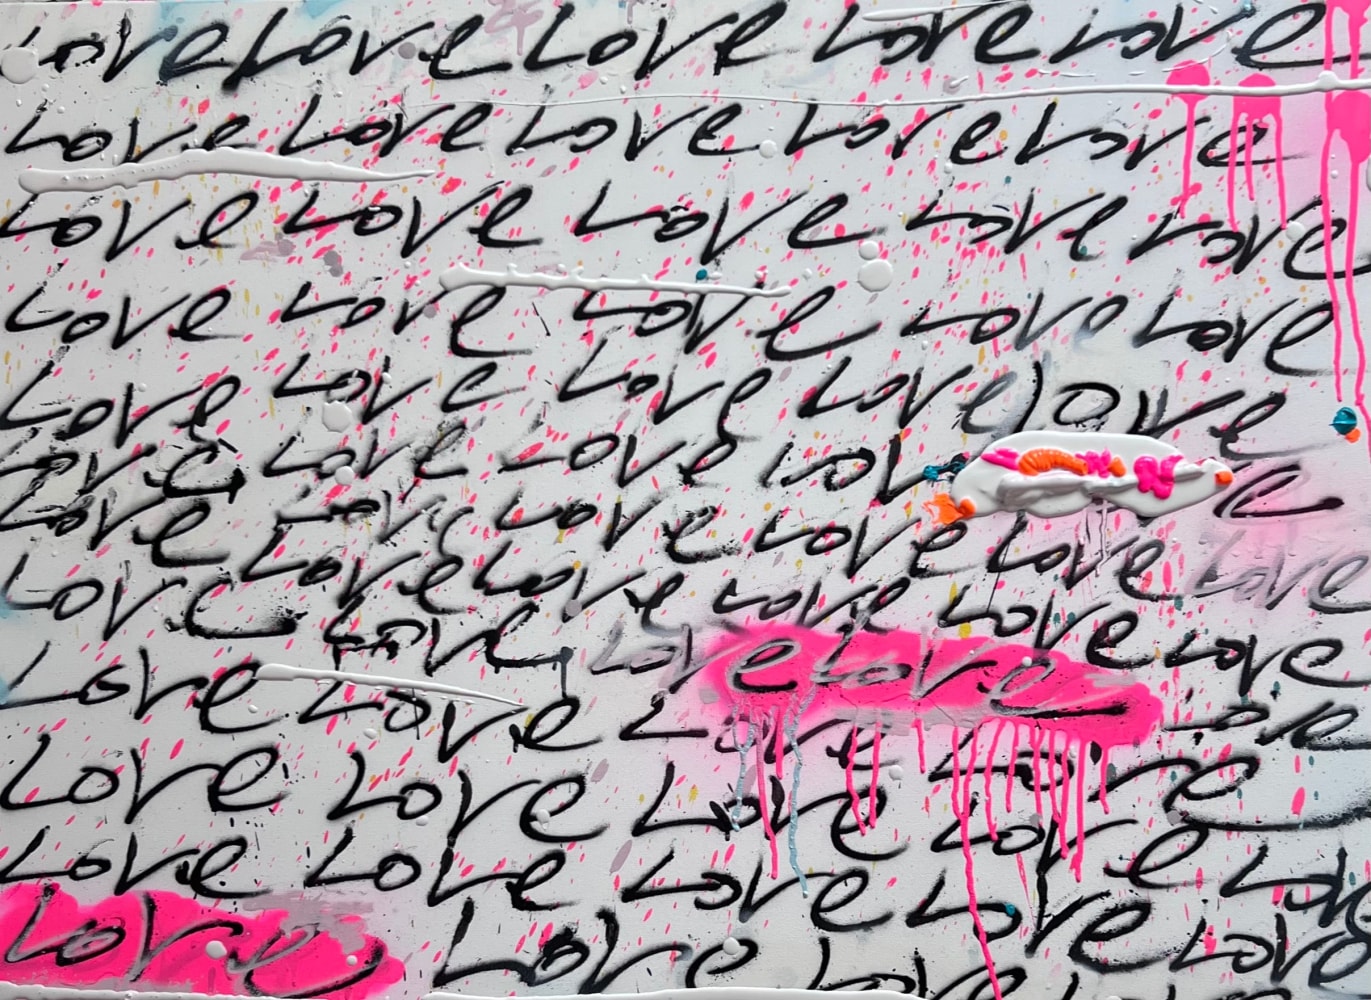 Love Love Love Love Love
Love Love Love Love Love
Love Love Love Love Love
Love Love Love Love Love
Love Love Love Love Love
Love Love Love Lov e
Love Love Love Love Love Love
Love Love Love Love Love Love
Love Love Love Love
Love Love Love
Love Love Love Love
Love Love Love Love
Love Love Love Love